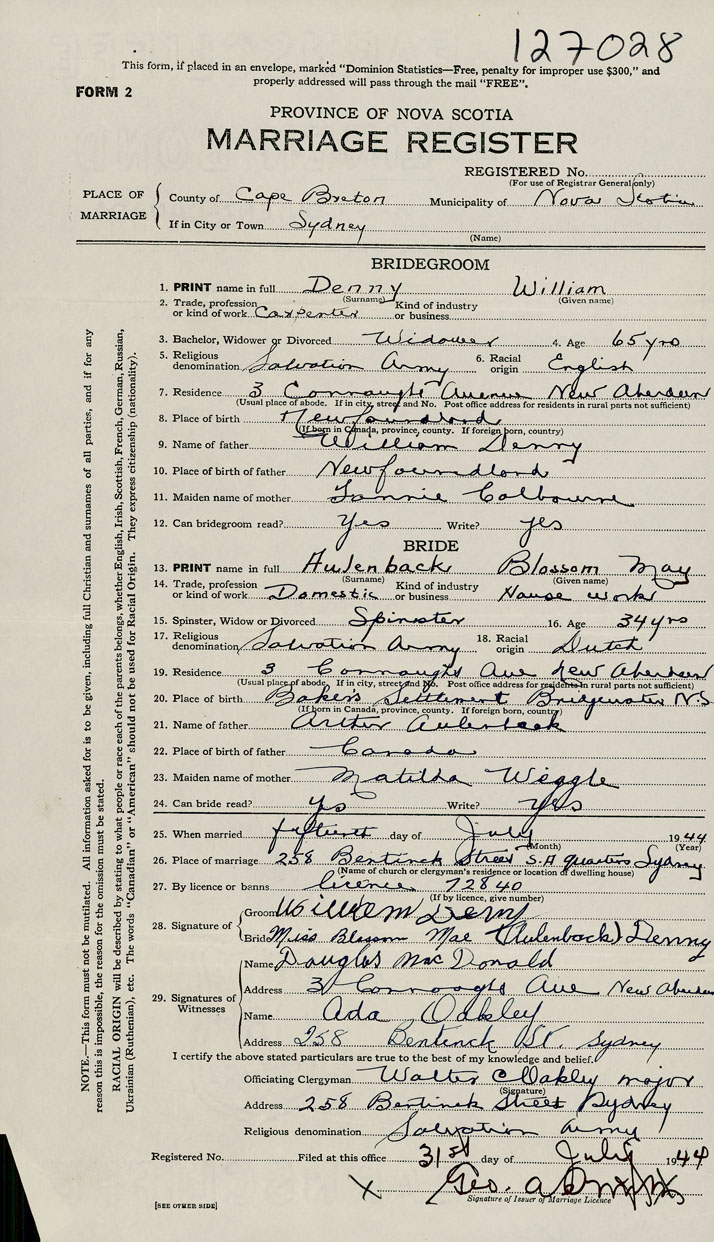 127028
This form, if placed in an envelope, marked “Dominion Statistics—Free, penalty for improper use $300,” and
properly addressed will pass through the mail “FREE”.
FORM 2
PROVINCE OF NOVA SCOTIA
MARRIAGE REGISTER
REGISTERED No.
(For use of Registrar General only)
PLACE OF MARRIAGE
County of Cape Breton Municipality of Nova Scotia
If in City or Town Sydney
(Name)
BRIDEGROOM
1. PRINT name in full Denny William
(Surname) (Given name)
2. Trade, profession or kind of work Carpenter Kind of industry or business
3. Bachelor, Widower or Divorced Widower 4. Age 65 yrs
5. Religious denomination Salvation Army 6. Racial origin English
7. Residence 3 Connaught Avenue New Aberdeen
(Usual place of abode. If in city, street and No. Post office address for residents in rural parts not sufficient)
8. Place of birth Newfoundland
(If born in Canada, province, county. If foreign born, country)
9. Name of father William Denny
10. Place of birth of father Newfoundland
11. Maiden name of mother Fannie Colbourne
12. Can bridegroom read? Yes Write? yes
BRIDE
13. PRINT name in full Aulenback Blossom May
(Surname) (Given name)
14. Trade, profession or kind of work Domestic Kind of industry or business House work
15. Spinster, Widow or Divorced Spinster 16. Age 34 yrs
17. Religious denomination Salvation Army 18. Racial origin Dutch
19. Residence 3 Connaught Ave New Aberdeen
(Usual place of abode. If in city, street and No. Post office address for residents in rural parts not sufficient)
20. Place of birth Baker's Settlement Bridgewater N.S
(If born in Canada, province, county. If foreign born, country)
21. Name of father Arthur Aulenback
22. Place of birth of father Canada
23. Maiden name of mother Matilda Weggle
24. Can bride read? Yes Write? Yes
25. When married fifteenth day of July 1944
(Month) (Year)
26. Place of marriage 258 Bentinck Street S.A quarters Sydney
(Name of church or clergyman's residence or location of dwelling house)
27. By licence or banns licence 72840
(If by licence, give number)
28. Signature of Groom William Deny
Bride Miss Blossom Mae (Aulenback) Denny
29. Signatures of Witnesses
Name Douglas MacDonald
Address 3 Connaught Ave New Aberdeen
Name Ada Oakley
Address 258 Bentinck St. Sydney
I certify the above stated particulars are true to the best of my knowledge and belief.
Officiating Clergyman Walter C Oakley major
(Signature)
Address 258 Bentinck Street Sydney
Religious denomination Salvation Army
Registered No. Filed at this office 31st day of July 1944
X Geo. a
Signature of Issuer of Marriage Licence
[SEE OTHER SIDE]
NOTE.—This form must not be mutilated. All information asked for is to be given, including full Christian and surnames of all parties, and if for any
reason this is impossible, the reason for the omission must be stated.
RACIAL ORIGIN will be described by stating to what people or race each of the parents belongs, whether English, Irish, Scottish, French, German, Russian,
Ukrainian (Ruthenian), etc. The words “Canadian” or “American” should not be used for Racial Origin. They express citizenship (nationality).